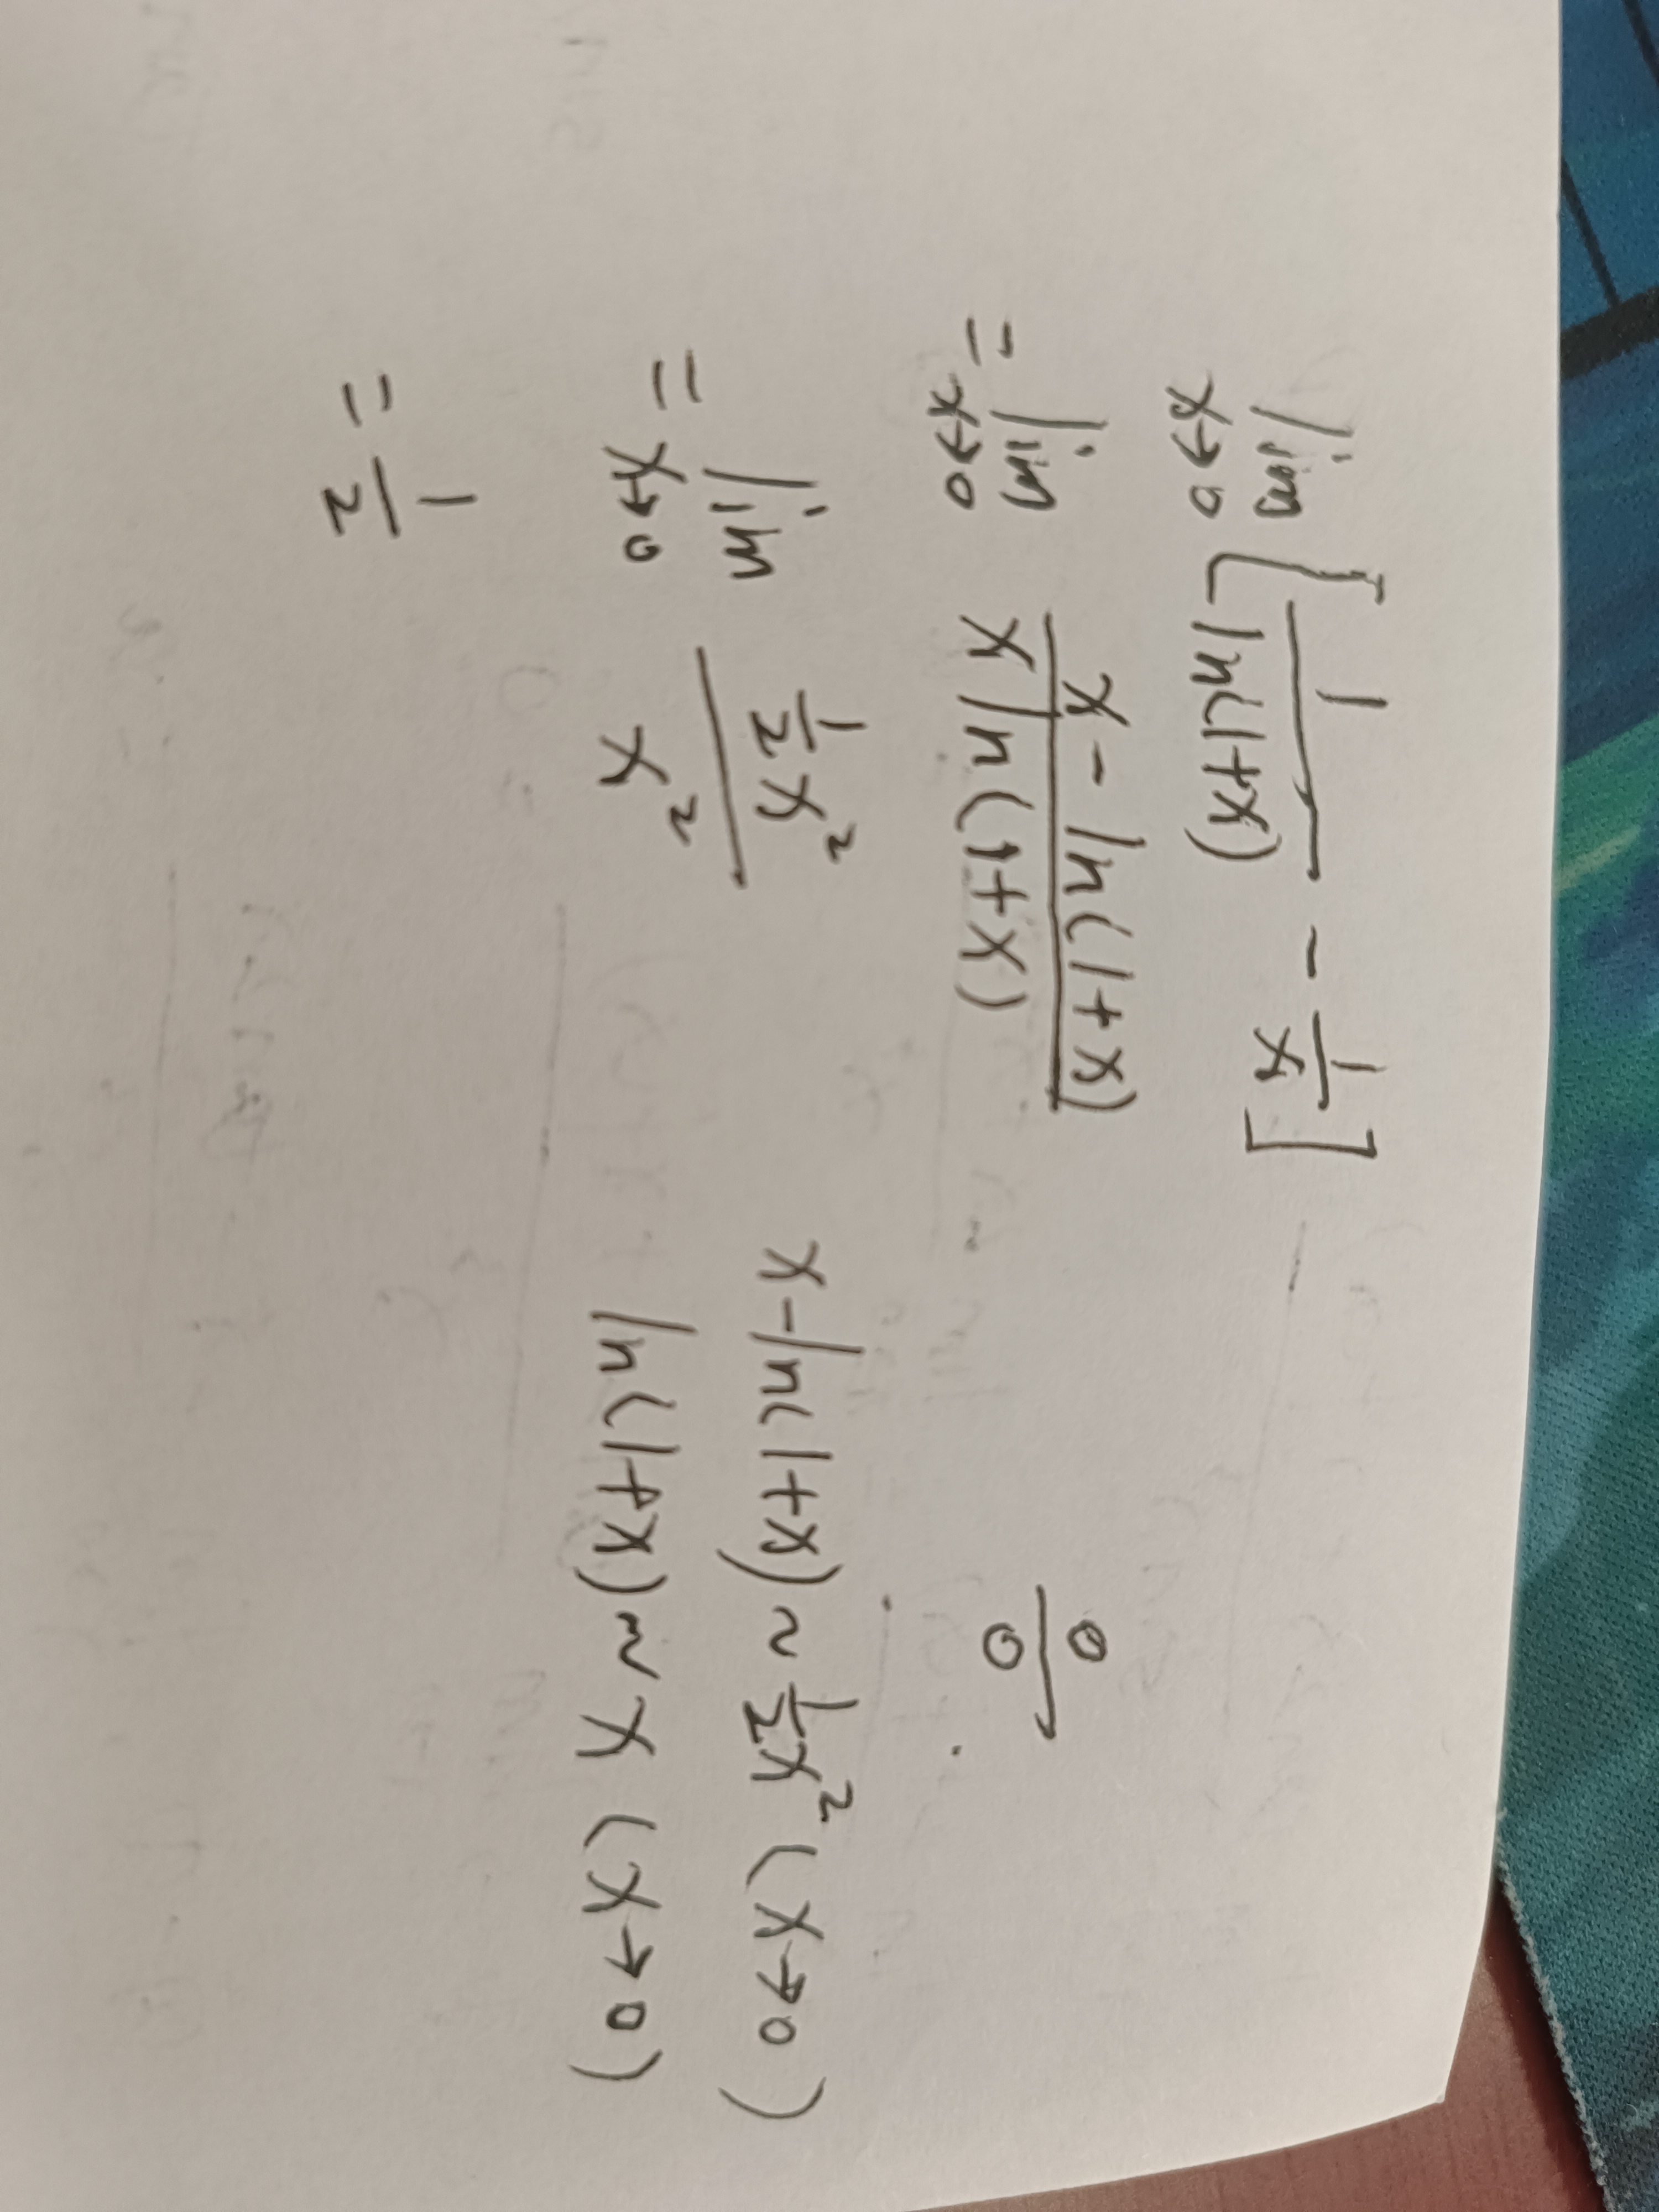 lim x→0 [ 1/ln(1+x) - 1/x ]
= lim x→0 (x - ln(1+x))/(x ln(1+x)) 0/0
= lim x→0 (1/2 x²)/(x²) x - ln(1+x) ~ 1/2 x² (x→0)
ln(1+x) ~ x (x→0)
= 1/2